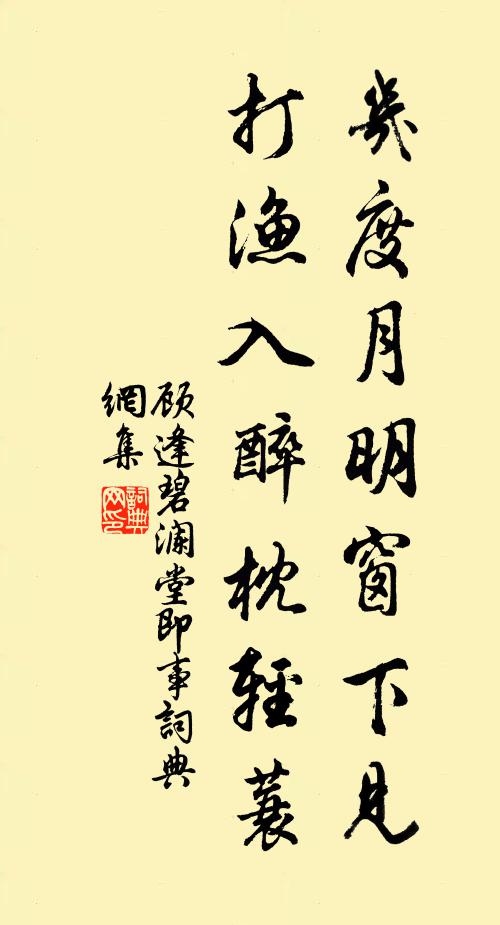 幾度月明窗下見
打漁入醉枕輕蓑
顾逢碧澜堂即事詞典
網集
詞典网印